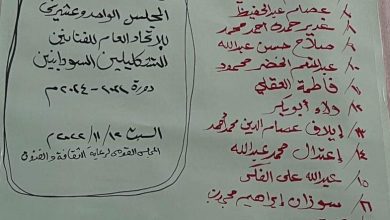 المجلس الواحد وعشرين
للاتحاد العام للفنانين
التشكيليين السودانيين
دورة ٢٠٢١ - ٢٠٢٤م
السبت ١٢ / ١١ / ٢٠٢٢م
المجلس القومي لرعاية الثقافة والفنون
عصام عبدالحفيظ
غدير حمدي احمد محمد
صلاح حسن عبدالله
١٠/ عبدالمنعم الخضر محمود
١١/ فاطمة العقلي
١٢/ ولاء أبوبكر
١٣/ إيلاف عصام الدين محمد أحمد
١٤/ إعتدال محمد عبدالله
١٥/ عبدالله على الفكي
١٦/ سوزان إبراهيم